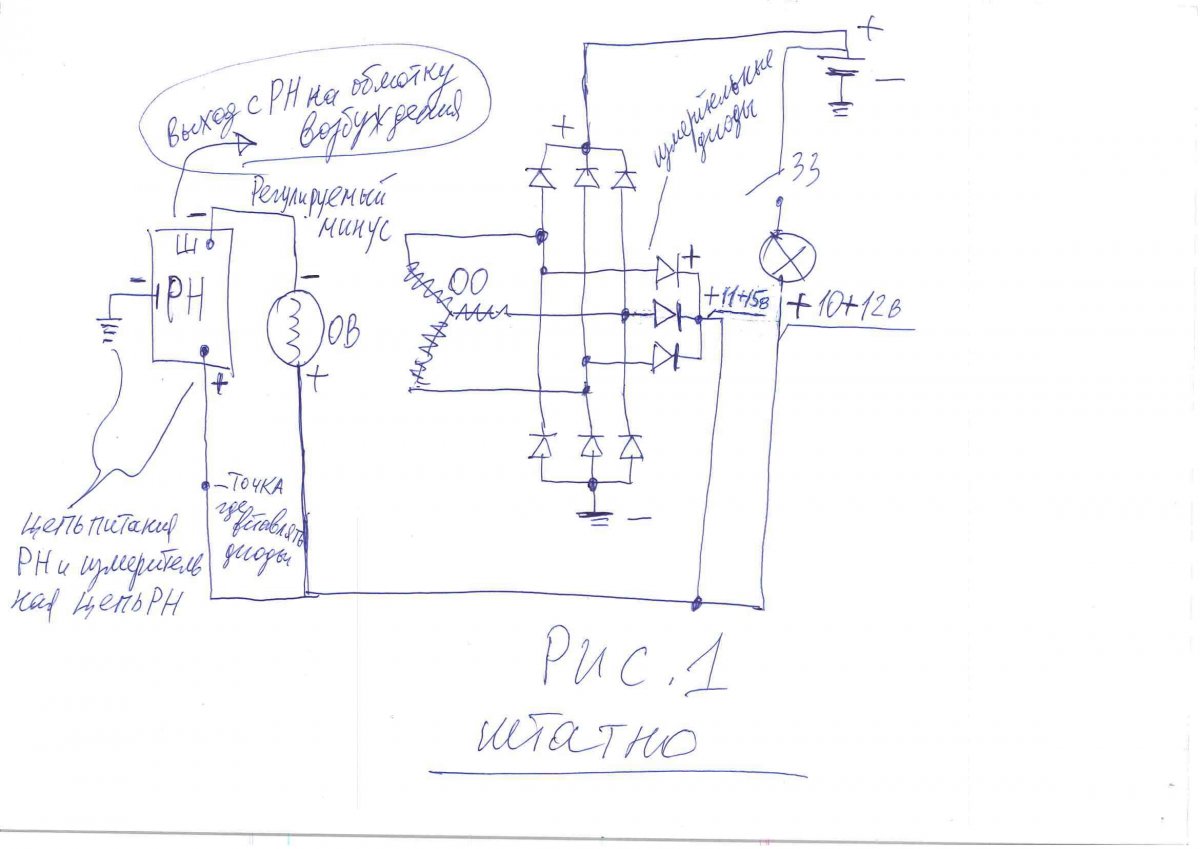 Выход с РН на обмотку
возбуждения
Регулируемый
минус
+
-
измерительные
диоды
+
ЗЗ
-
Ш
-
РН
+
-
ОВ
+
ОО
+
+11+15в
+10+12в
-точка
где
вставлять
диоды
-
Цепь питания
РН и измеритель
ная цепь РН
Рис.1
штатно